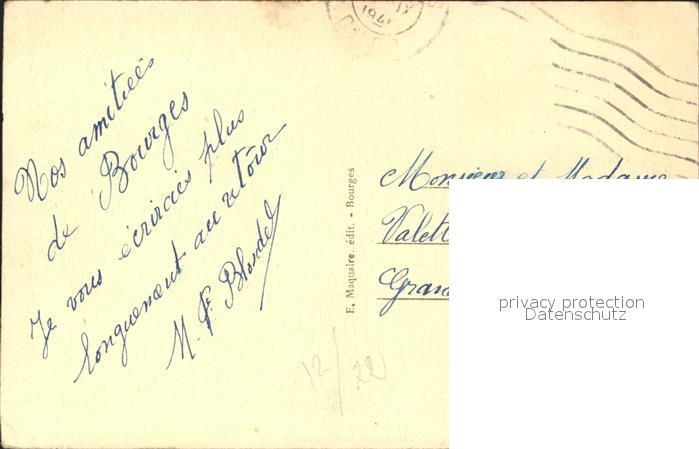 Nos amitiés
de Bourges
Je vous écrirais plus
longuement au retour
M. F. Blondel
E. Maquaire, édit. - Bourges
Monsieur et Madame
Valett
Gran
privacy protection
Datenschutz
12/